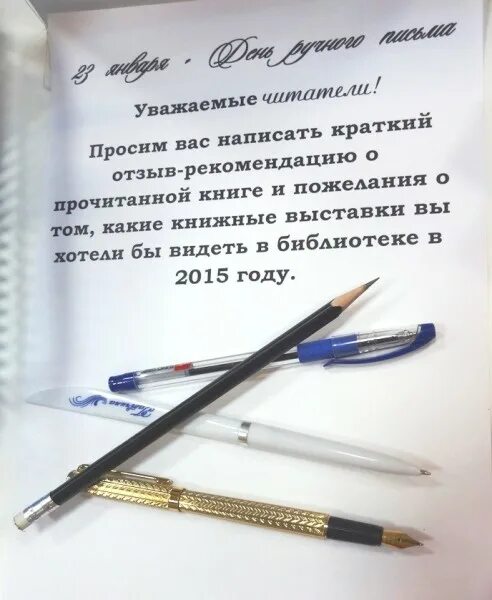 23 января • День ручного письма
Уважаемые читатели!
Просим вас написать краткий
отзыв-рекомендацию о
прочитанной книге и пожелания о
том, какие книжные выставки вы
хотели бы видеть в библиотеке в
2015 году.